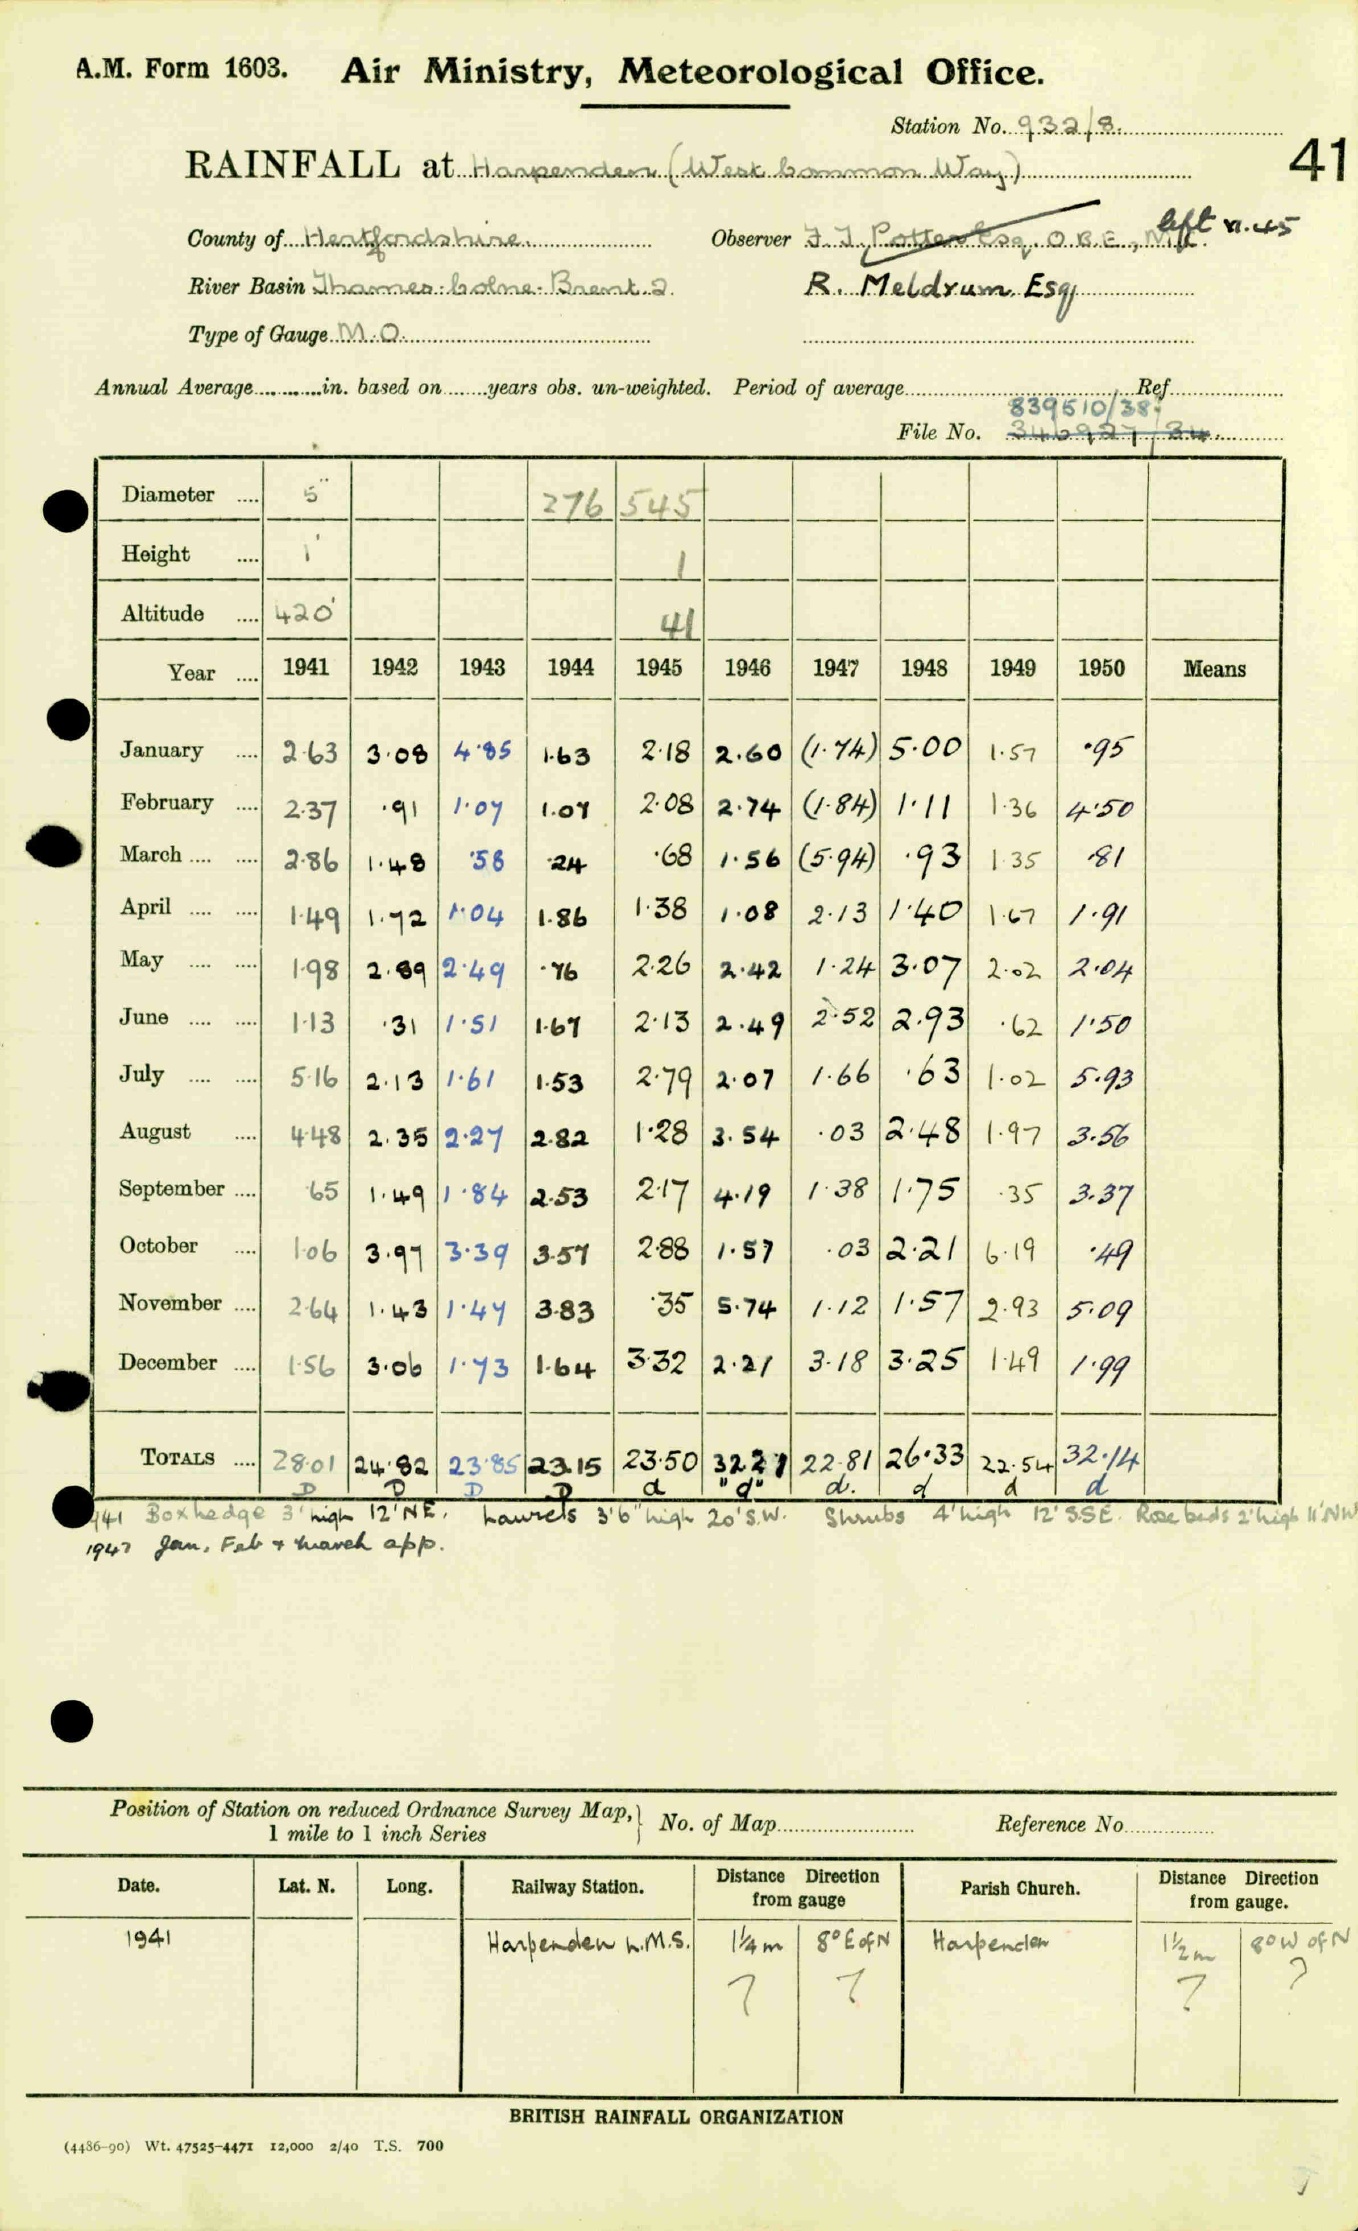 A.M. Form 1603. Air Ministry, Meteorological Office.
Station No. 932/8.
41
RAINFALL at Harpenden (West Common Way)
County of Hertfordshire. Observer F. J. Potter Esq O.B.E., M.C. left xi.45
River Basin Thames-Colne-Brent 2. R. Meldrum Esq
Type of Gauge M.O.
Annual Average in. based on years obs. un-weighted. Period of average Ref
839510/38.
File No. 346927/34
Diameter .... 5" 276 545
Height .... 1' 1
Altitude .... 420' 41
Year .... 1941 1942 1943 1944 1945 1946 1947 1948 1949 1950 Means
January .... 2.63 3.08 4.85 1.63 2.18 2.60 (1.74) 5.00 1.57 .95
February .... 2.37 .91 1.07 1.07 2.08 2.74 (1.84) 1.11 1.36 4.50
March .... .... 2.86 1.48 .58 .24 .68 1.56 (5.94) .93 1.35 .81
April .... .... 1.49 1.72 1.04 1.86 1.38 1.08 2.13 1.40 1.67 1.91
May .... .... 1.98 2.89 2.49 .76 2.26 2.42 1.24 3.07 2.02 2.04
June .... .... 1.13 .31 1.51 1.67 2.13 2.49 2.52 2.93 .62 1.50
July .... .... 5.16 2.13 1.61 1.53 2.79 2.07 1.66 .63 1.02 5.93
August .... 4.48 2.35 2.27 2.82 1.28 3.54 .03 2.48 1.97 3.56
September .... .65 1.49 1.84 2.53 2.17 4.19 1.38 1.75 .35 3.37
October .... 1.06 3.97 3.39 3.57 2.88 1.57 .03 2.21 6.19 .49
November .... 2.64 1.43 1.47 3.83 .35 5.74 1.12 1.57 2.93 5.09
December .... 1.56 3.06 1.73 1.64 3.32 2.21 3.18 3.25 1.49 1.99
TOTALS .... 28.01 24.82 23.85 23.15 23.50 32.21 22.81 26.33 22.54 32.14
D D D D d "d" d. d d d
1941 Box hedge 3' high 12' NE. Laurels 3'6" high 20' S.W. Shrubs 4' high 12' SSE. Rose beds 2' high 11' NW
1947 Jan, Feb + March app.
Position of Station on reduced Ordnance Survey Map, 1 mile to 1 inch Series No. of Map Reference No
Date. Lat. N. Long. Railway Station. Distance Direction from gauge Parish Church. Distance Direction from gauge.
1941 Harpenden L.M.S. 1¼ m 8° E of N Harpenden 1½ m 8° W of N
? ? ? ?
BRITISH RAINFALL ORGANIZATION
(4486-90) Wt. 47525-4471 12,000 2/40 T.S. 700